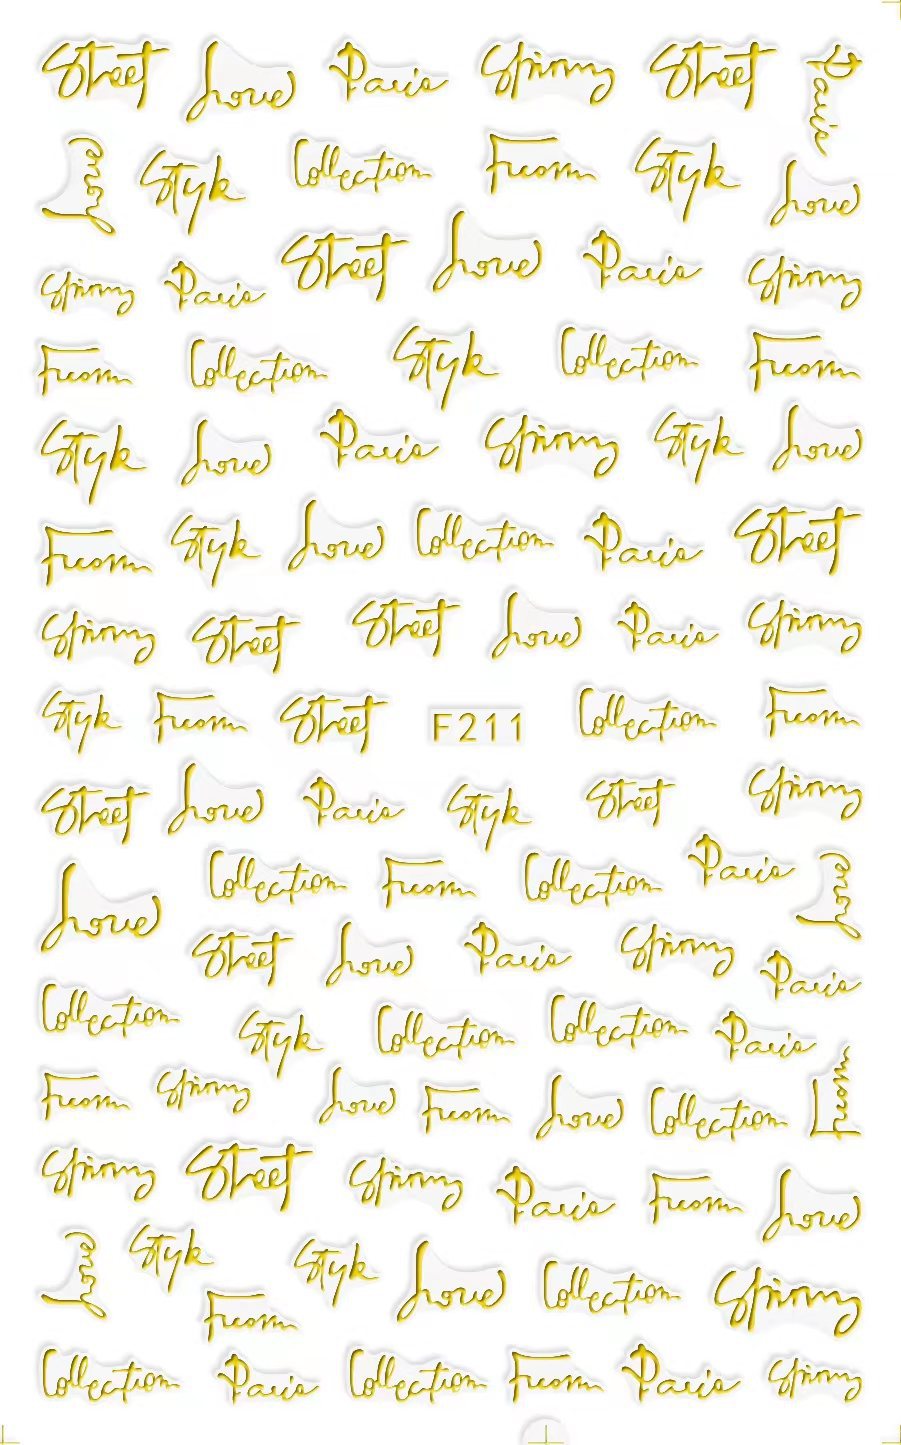 Street Love Paris Spring Street Paris
Love Style Collection Style Love
Spring Paris Street Love Paris Spring
Collection Style Collection
Style Love Paris Spring Style Love
Style Love Collection Paris Street
Spring Street Street Love Paris Spring
Style Street F211 Collection
Street Love Paris Style Street Spring
Love Collection Collection Paris Love
Street Love Paris Spring Paris
Collection Style Collection Collection Paris
Spring Love Love Collection
Spring Street Spring Paris Love
Love Style Style Love Collection Spring
Collection Paris Collection Paris Spring